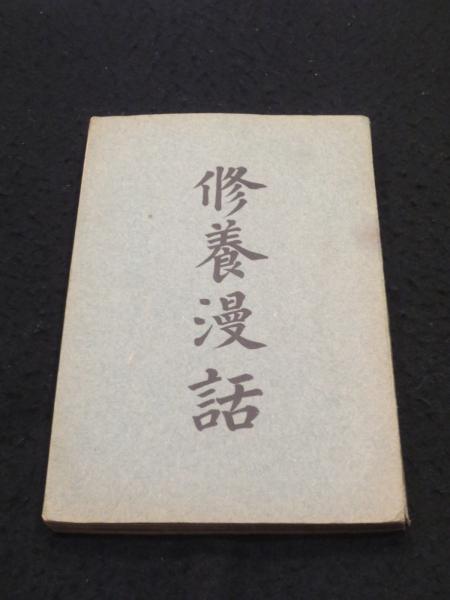 修養漫話